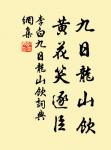 九日龍山飲
黃花笑逐臣
李白九日龍山飲詞典
網集